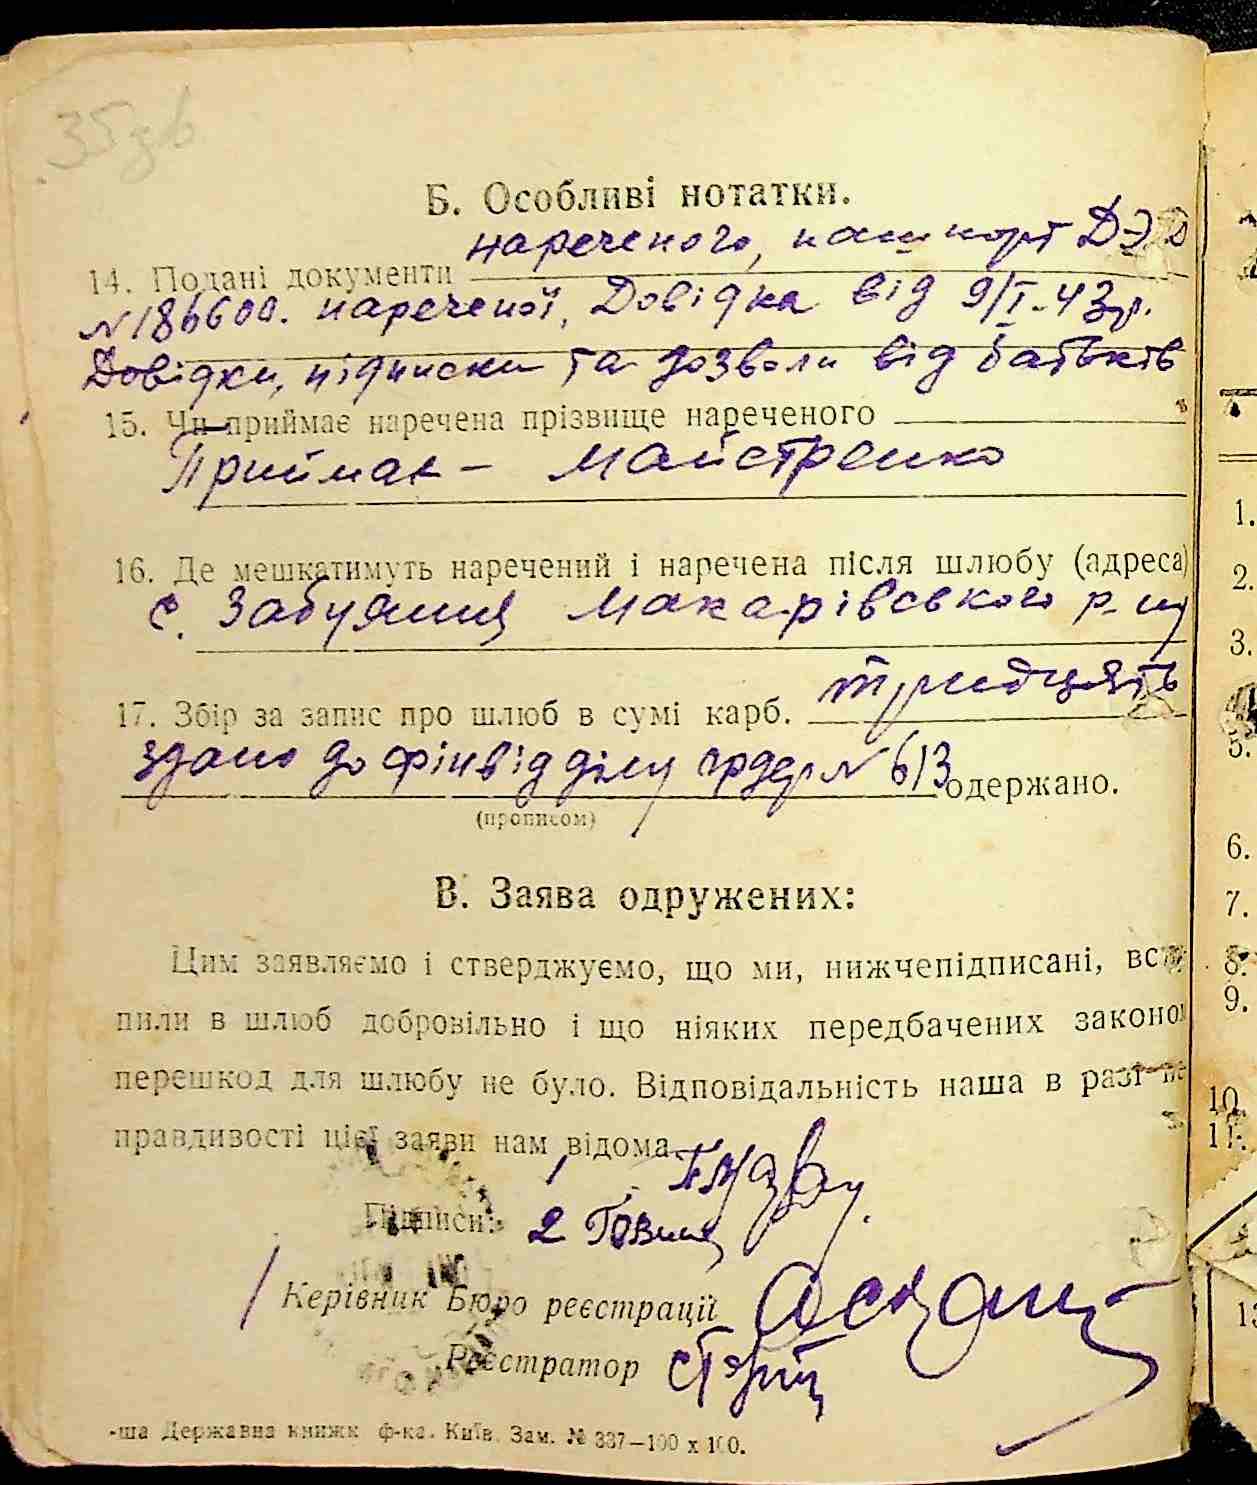 35зв
Б. Особливі нотатки.
14. Подані документи нареченого, пашпорт ДЭД
№ 186600. нареченої, Довідка від 9/I-43р.
Довідки, підписки та дозволи від батьків
15. Чи приймає наречена прізвище нареченого
Приймає – Майстренко
16. Де мешкатимуть наречений і наречена після шлюбу (адреса)
с. Забуяння Макарівського р-ну
17. Збір за запис про шлюб в сумі карб. тридцять
здано до фінвідділу ордер № 613 одержано.
(прописом)
В. Заява одружених:
Цим заявляємо і стверджуємо, що ми, нижчепідписані, всту
пили в шлюб добровільно і що ніяких передбачених законом
перешкод для шлюбу не було. Відповідальність наша в разі не
правдивості цієї заяви нам відома.
Підписи: 2
Керівник Бюро реєстрації
Реєстратор
-ша Державна книжк ф-ка. Київ. Зам. № 337—100 x 100.
1.
2.
3.
5.
6.
7.
8.
9.
10.
11.